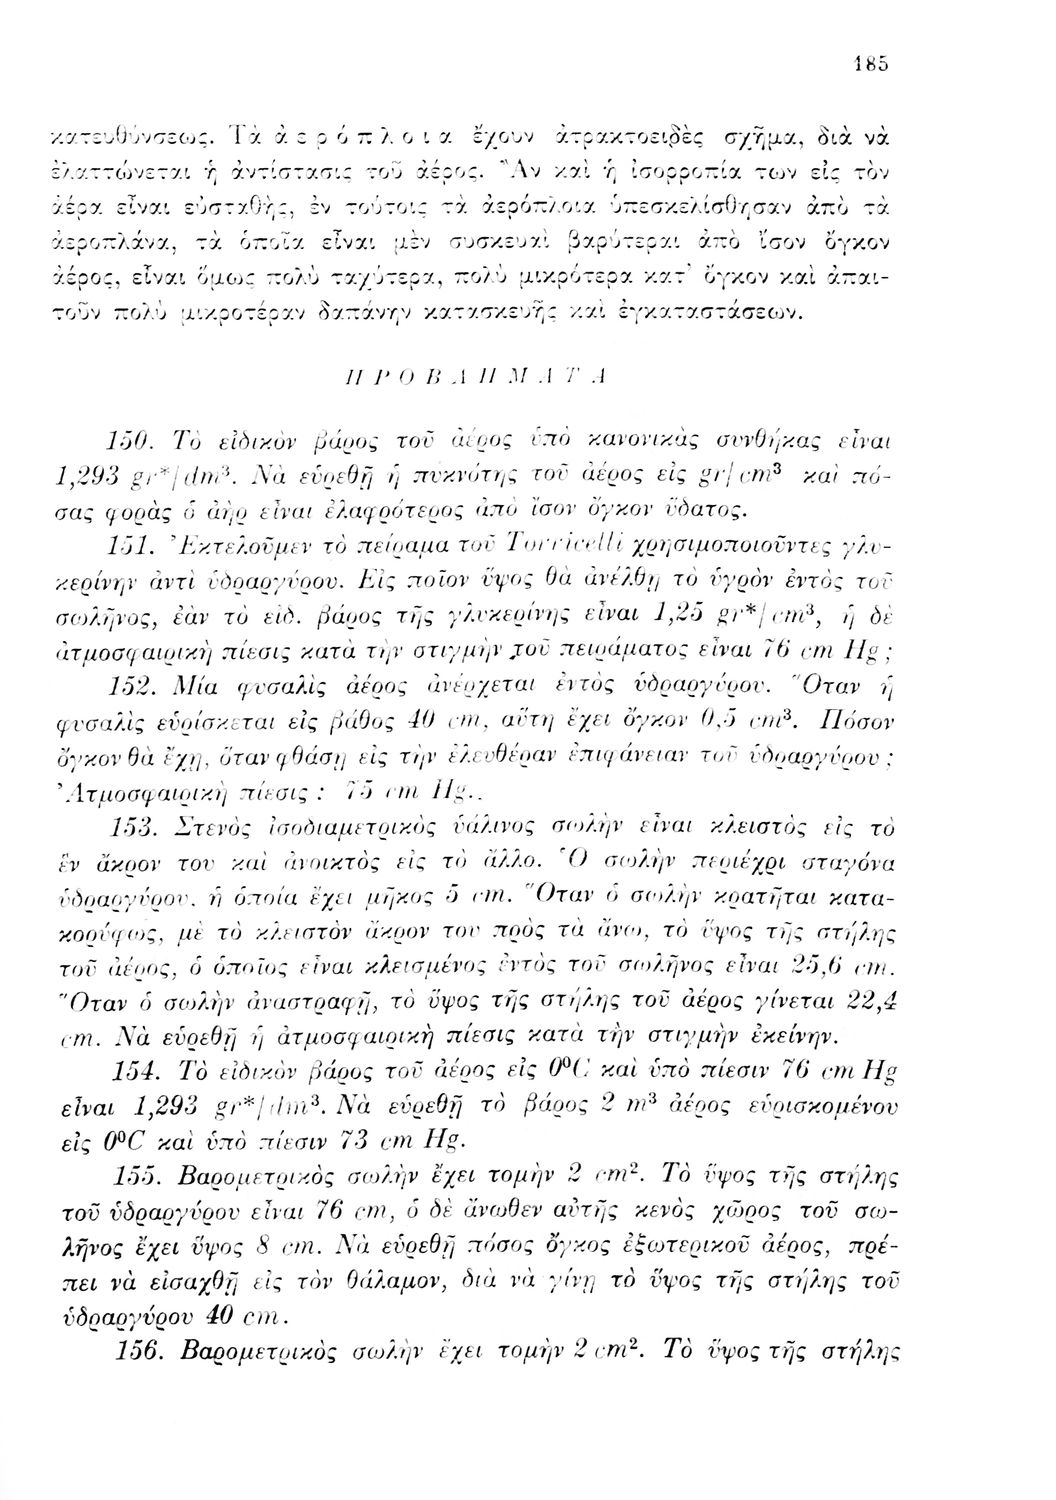 185
κατευθύνσεως. Τὰ ἀ ε ρ ό π λ ο ι α ἔχουν ἀτρακτοειδὲς σχῆμα, διὰ νὰ
ἐλαττώνεται ἡ ἀντίστασις τοῦ ἀέρος. Ἂν καὶ ἡ ἰσορροπία των εἰς τὸν
ἀέρα εἶναι εὐσταθής, ἐν τούτοις τὰ ἀερόπλοια ὑπεσκελίσθησαν ἀπὸ τὰ
ἀεροπλάνα, τὰ ὁποῖα εἶναι μὲν συσκευαὶ βαρύτεραι ἀπὸ ἴσον ὄγκον
ἀέρος, εἶναι ὅμως πολὺ ταχύτερα, πολὺ μικρότερα κατ᾽ ὄγκον καὶ ἀπαι-
τοῦν πολὺ μικροτέραν δαπάνην κατασκευῆς καὶ ἐγκαταστάσεων.
Π Ρ Ο Β Λ Η Μ Α Τ Α
150. Τὸ εἰδικὸν βάρος τοῦ ἀέρος ὑπὸ κανονικὰς συνθήκας εἶναι
1,293 gr*/dm³. Νὰ εὑρεθῇ ἡ πυκνότης τοῦ ἀέρος εἰς gr/cm³ καὶ πό-
σας φορὰς ὁ ἀὴρ εἶναι ἐλαφρότερος ἀπὸ ἴσον ὄγκον ὕδατος.
151. Ἐκτελοῦμεν τὸ πείραμα τοῦ Torricelli χρησιμοποιοῦντες γλυ-
κερίνην ἀντὶ ὑδραργύρου. Εἰς ποῖον ὕψος θὰ ἀνέλθῃ τὸ ὑγρὸν ἐντὸς τοῦ
σωλῆνος, ἐὰν τὸ εἰδ. βάρος τῆς γλυκερίνης εἶναι 1,25 gr*/cm³, ἡ δὲ
ἀτμοσφαιρικὴ πίεσις κατὰ τὴν στιγμὴν τοῦ πειράματος εἶναι 76 cm Hg ;
152. Μία φυσαλὶς ἀέρος ἀνέρχεται ἐντὸς ὑδραργύρου. Ὅταν ἡ
φυσαλὶς εὑρίσκεται εἰς βάθος 40 cm, αὕτη ἔχει ὄγκον 0,5 cm³. Πόσον
ὄγκον θὰ ἔχῃ, ὅταν φθάσῃ εἰς τὴν ἐλευθέραν ἐπιφάνειαν τοῦ ὑδραργύρου ;
Ἀτμοσφαιρικὴ πίεσις : 75 cm Hg..
153. Στενὸς ἰσοδιαμετρικὸς ὑάλινος σωλὴν εἶναι κλειστὸς εἰς τὸ
ἓν ἄκρον του καὶ ἀνοικτὸς εἰς τὸ ἄλλο. Ὁ σωλὴν περιέχρι σταγόνα
ὑδραργύρου, ἡ ὁποία ἔχει μῆκος 5 cm. Ὅταν ὁ σωλὴν κρατῆται κατα-
κορύφως, μὲ τὸ κλειστὸν ἄκρον του πρὸς τὰ ἄνω, τὸ ὕψος τῆς στήλης
τοῦ ἀέρος, ὁ ὁποῖος εἶναι κλεισμένος ἐντὸς τοῦ σωλῆνος εἶναι 25,6 cm.
Ὅταν ὁ σωλὴν ἀναστραφῇ, τὸ ὕψος τῆς στήλης τοῦ ἀέρος γίνεται 22,4
cm. Νὰ εὑρεθῇ ἡ ἀτμοσφαιρικὴ πίεσις κατὰ τὴν στιγμὴν ἐκείνην.
154. Τὸ εἰδικὸν βάρος τοῦ ἀέρος εἰς 0⁰C καὶ ὑπὸ πίεσιν 76 cm Hg
εἶναι 1,293 gr*/dm³. Νὰ εὑρεθῇ τὸ βάρος 2 m³ ἀέρος εὑρισκομένου
εἰς 0⁰C καὶ ὑπὸ πίεσιν 73 cm Hg.
155. Βαρομετρικὸς σωλὴν ἔχει τομὴν 2 cm². Τὸ ὕψος τῆς στήλης
τοῦ ὑδραργύρου εἶναι 76 cm, ὁ δὲ ἄνωθεν αὐτῆς κενὸς χῶρος τοῦ σω-
λῆνος ἔχει ὕψος 8 cm. Νὰ εὑρεθῇ πόσος ὄγκος ἐξωτερικοῦ ἀέρος, πρέ-
πει νὰ εἰσαχθῇ εἰς τὸν θάλαμον, διὰ νὰ γίνῃ τὸ ὕψος τῆς στήλης τοῦ
ὑδραργύρου 40 cm.
156. Βαρομετρικὸς σωλὴν ἔχει τομὴν 2 cm². Τὸ ὕψος τῆς στήλης